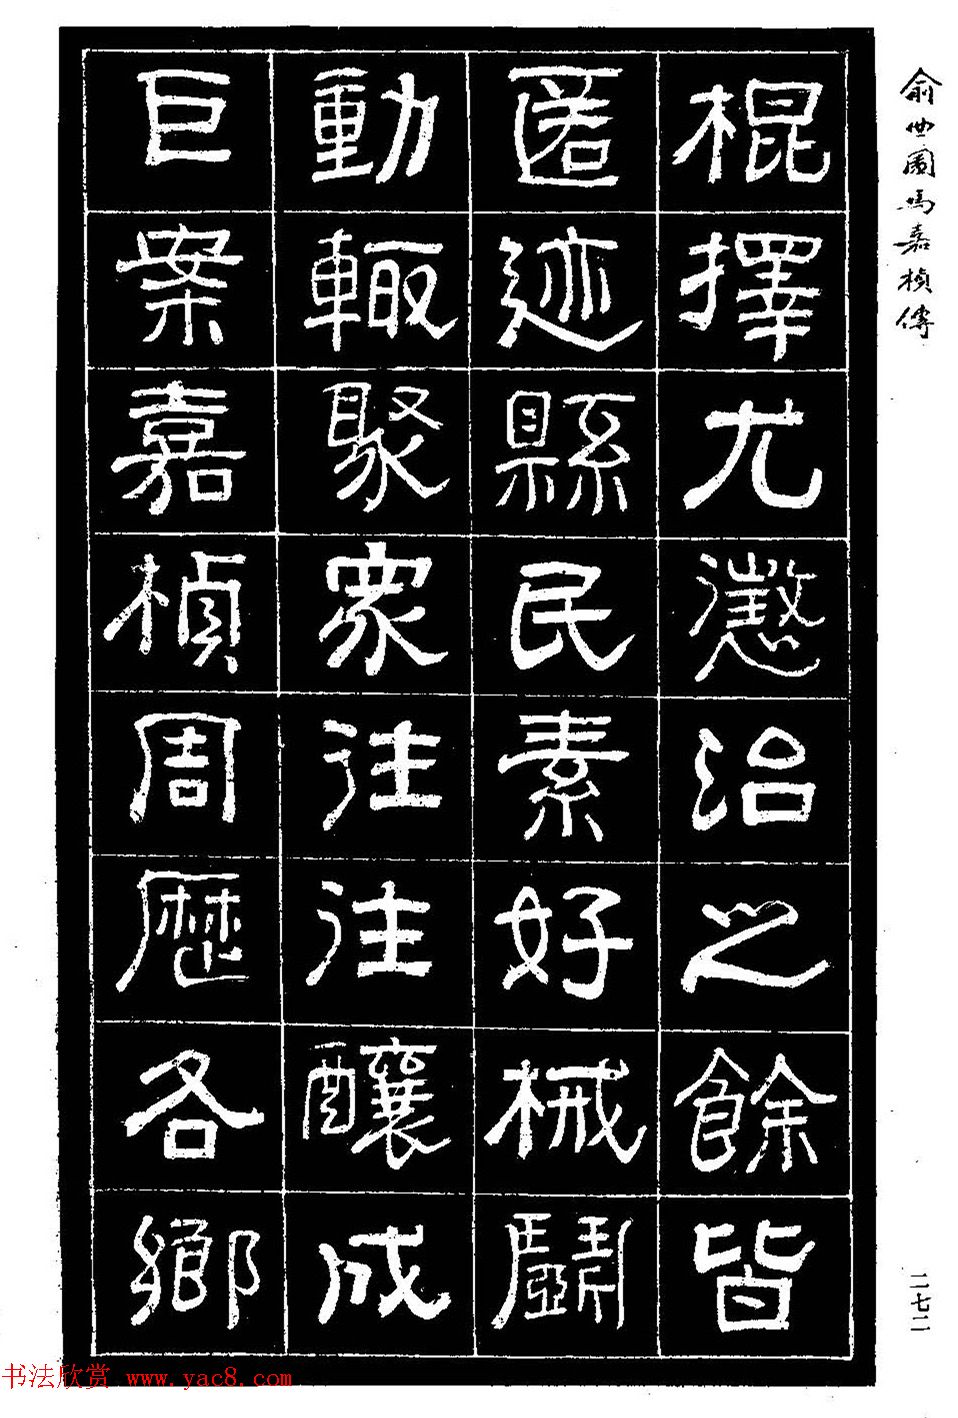 俞曲園馬嘉楨傳
棍擇尤懲治之餘皆
匿迹縣民素好械鬭
動輒聚眾往往釀成
巨案嘉楨周歷各鄉
二七二
书法欣赏 www.yac8.com